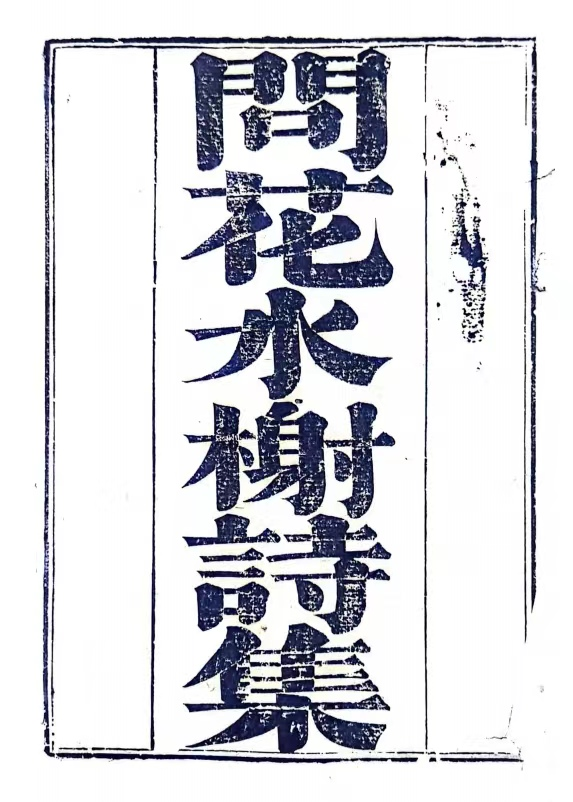 問花水榭詩集